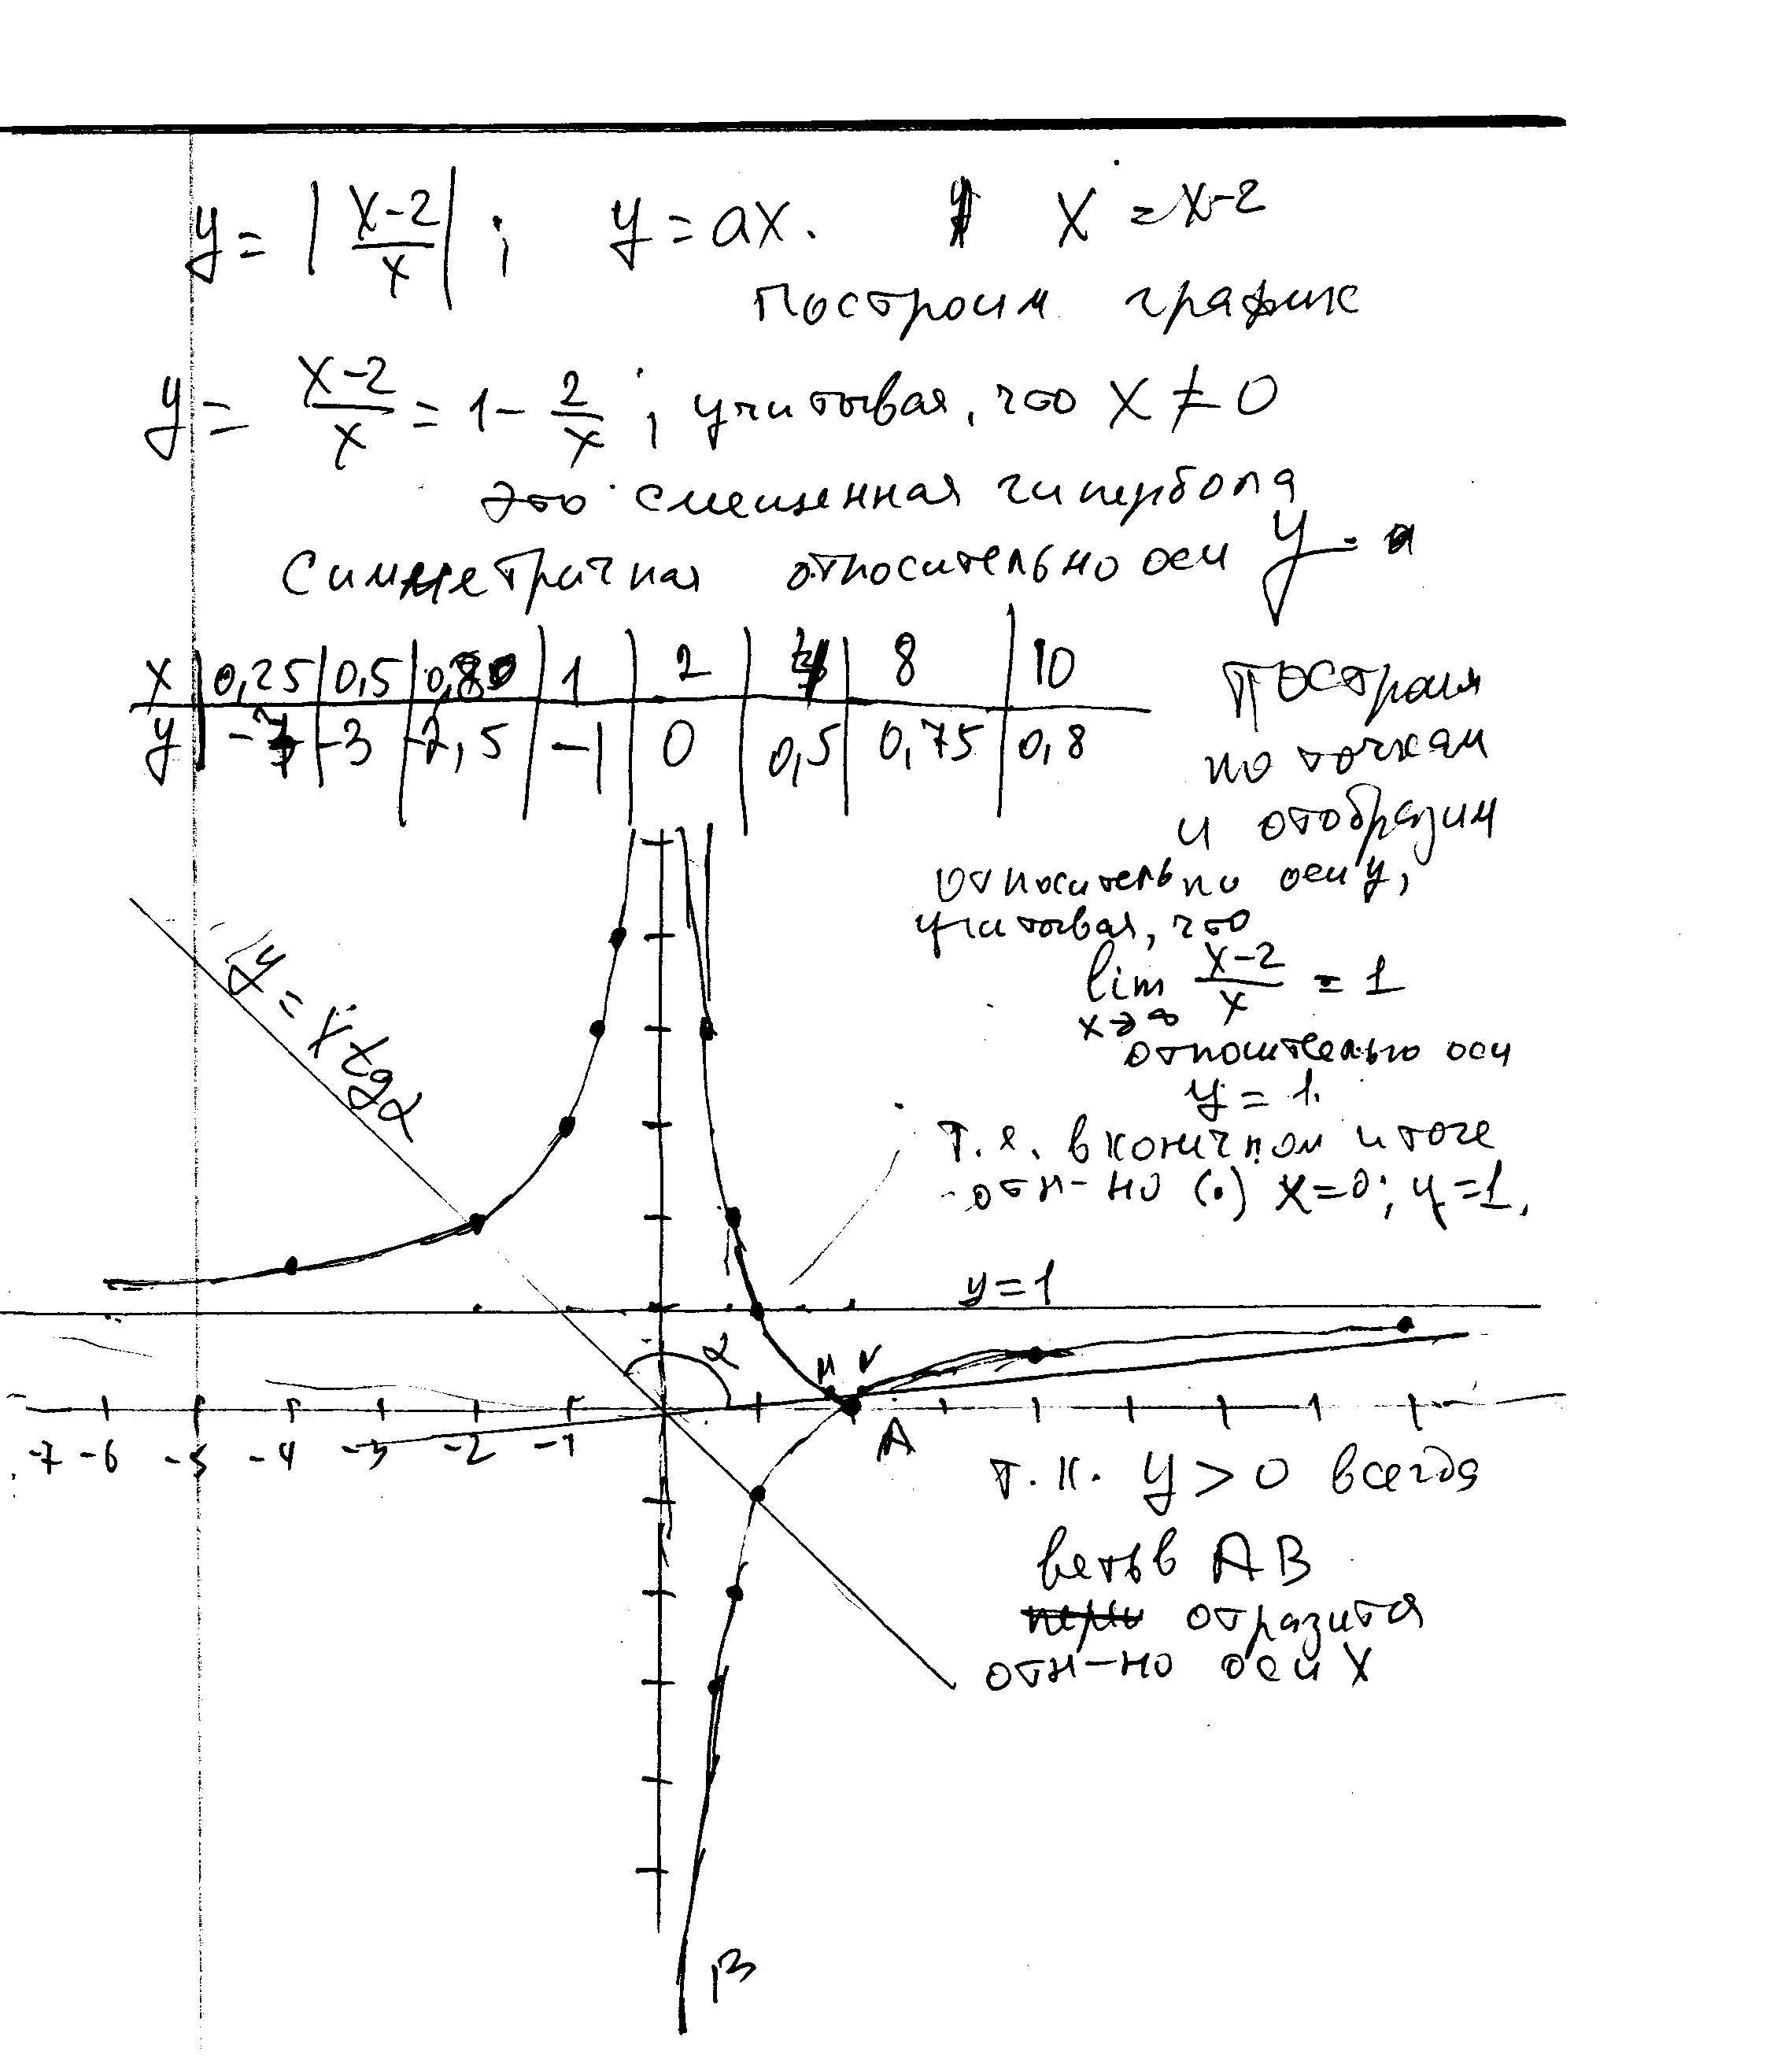 y = | x-2 / x | ; y = ax. x = x-2
Построим график
y = x-2 / x = 1 - 2 / x ; учитывая, что x ≠ 0
это смещенная гипербола
Симметричная относительно оси y =
x | 0,25 | 0,5 | 0,80 | 1 | 2 | 4 | 8 | 10
y | -7 | -3 | -2,5 | -1 | 0 | 0,5 | 0,75 | 0,8
Построим
по точкам
и отобразим
относительно оси y,
учитывая, что
lim x-2 / x = 1
x→∞
относительно оси
y = 1.
т.е. в конечном итоге
отн-но (.) x=0; y=1.
y = x tgα
y=1
α
M N
A
-7 -6 -5 -4 -3 -2 -1
т.к. y > 0 всегда
ветвь AB
отразится
отн-но оси x
B